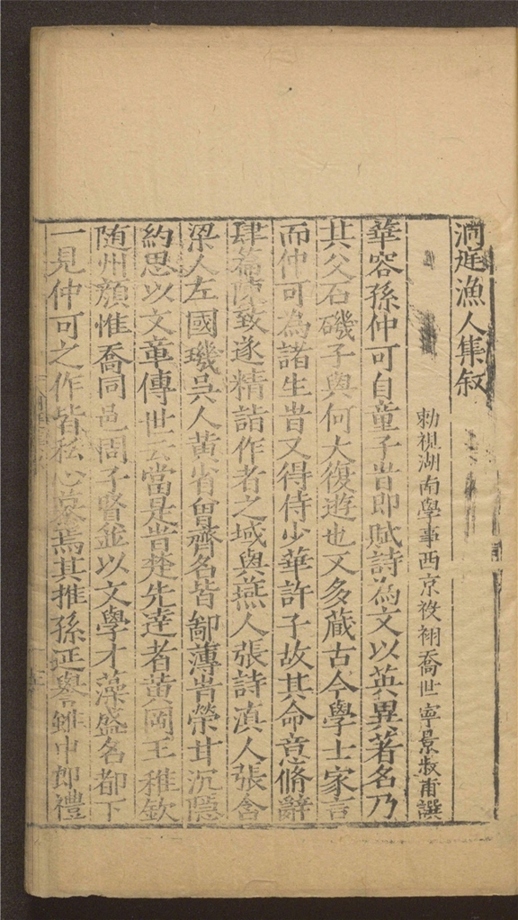 洞庭漁人集叙
勑視湖南學事西京祋祤喬世寧景叔甫譔
華容孫仲可自童子旹即賦詩為文以英異著名乃
其父石磯子與何大復遊也又多蔵古今學士家言
而仲可為諸生旹又得侍少華許子故其命意脩辭
肆萹陵致遂精詣作者之域與燕人張詩滇人張含
梁人左國璣吳人黃省曾齊名皆鄙薄旹榮甘沉隱
約思以文章傳世云當是旹楚先達者黃岡王稚欽
随州顏惟喬同邑周子賢並以文學才藻盛名都下
一見仲可之作皆私心慕焉其推孫延譽雖中郎禮